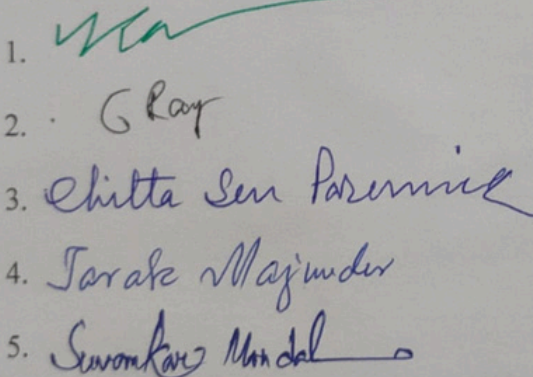 1.
2. G Ray
3. Chitta Sen Paremmick
4. Tarak Majumder
5. Suvomkar Mondal